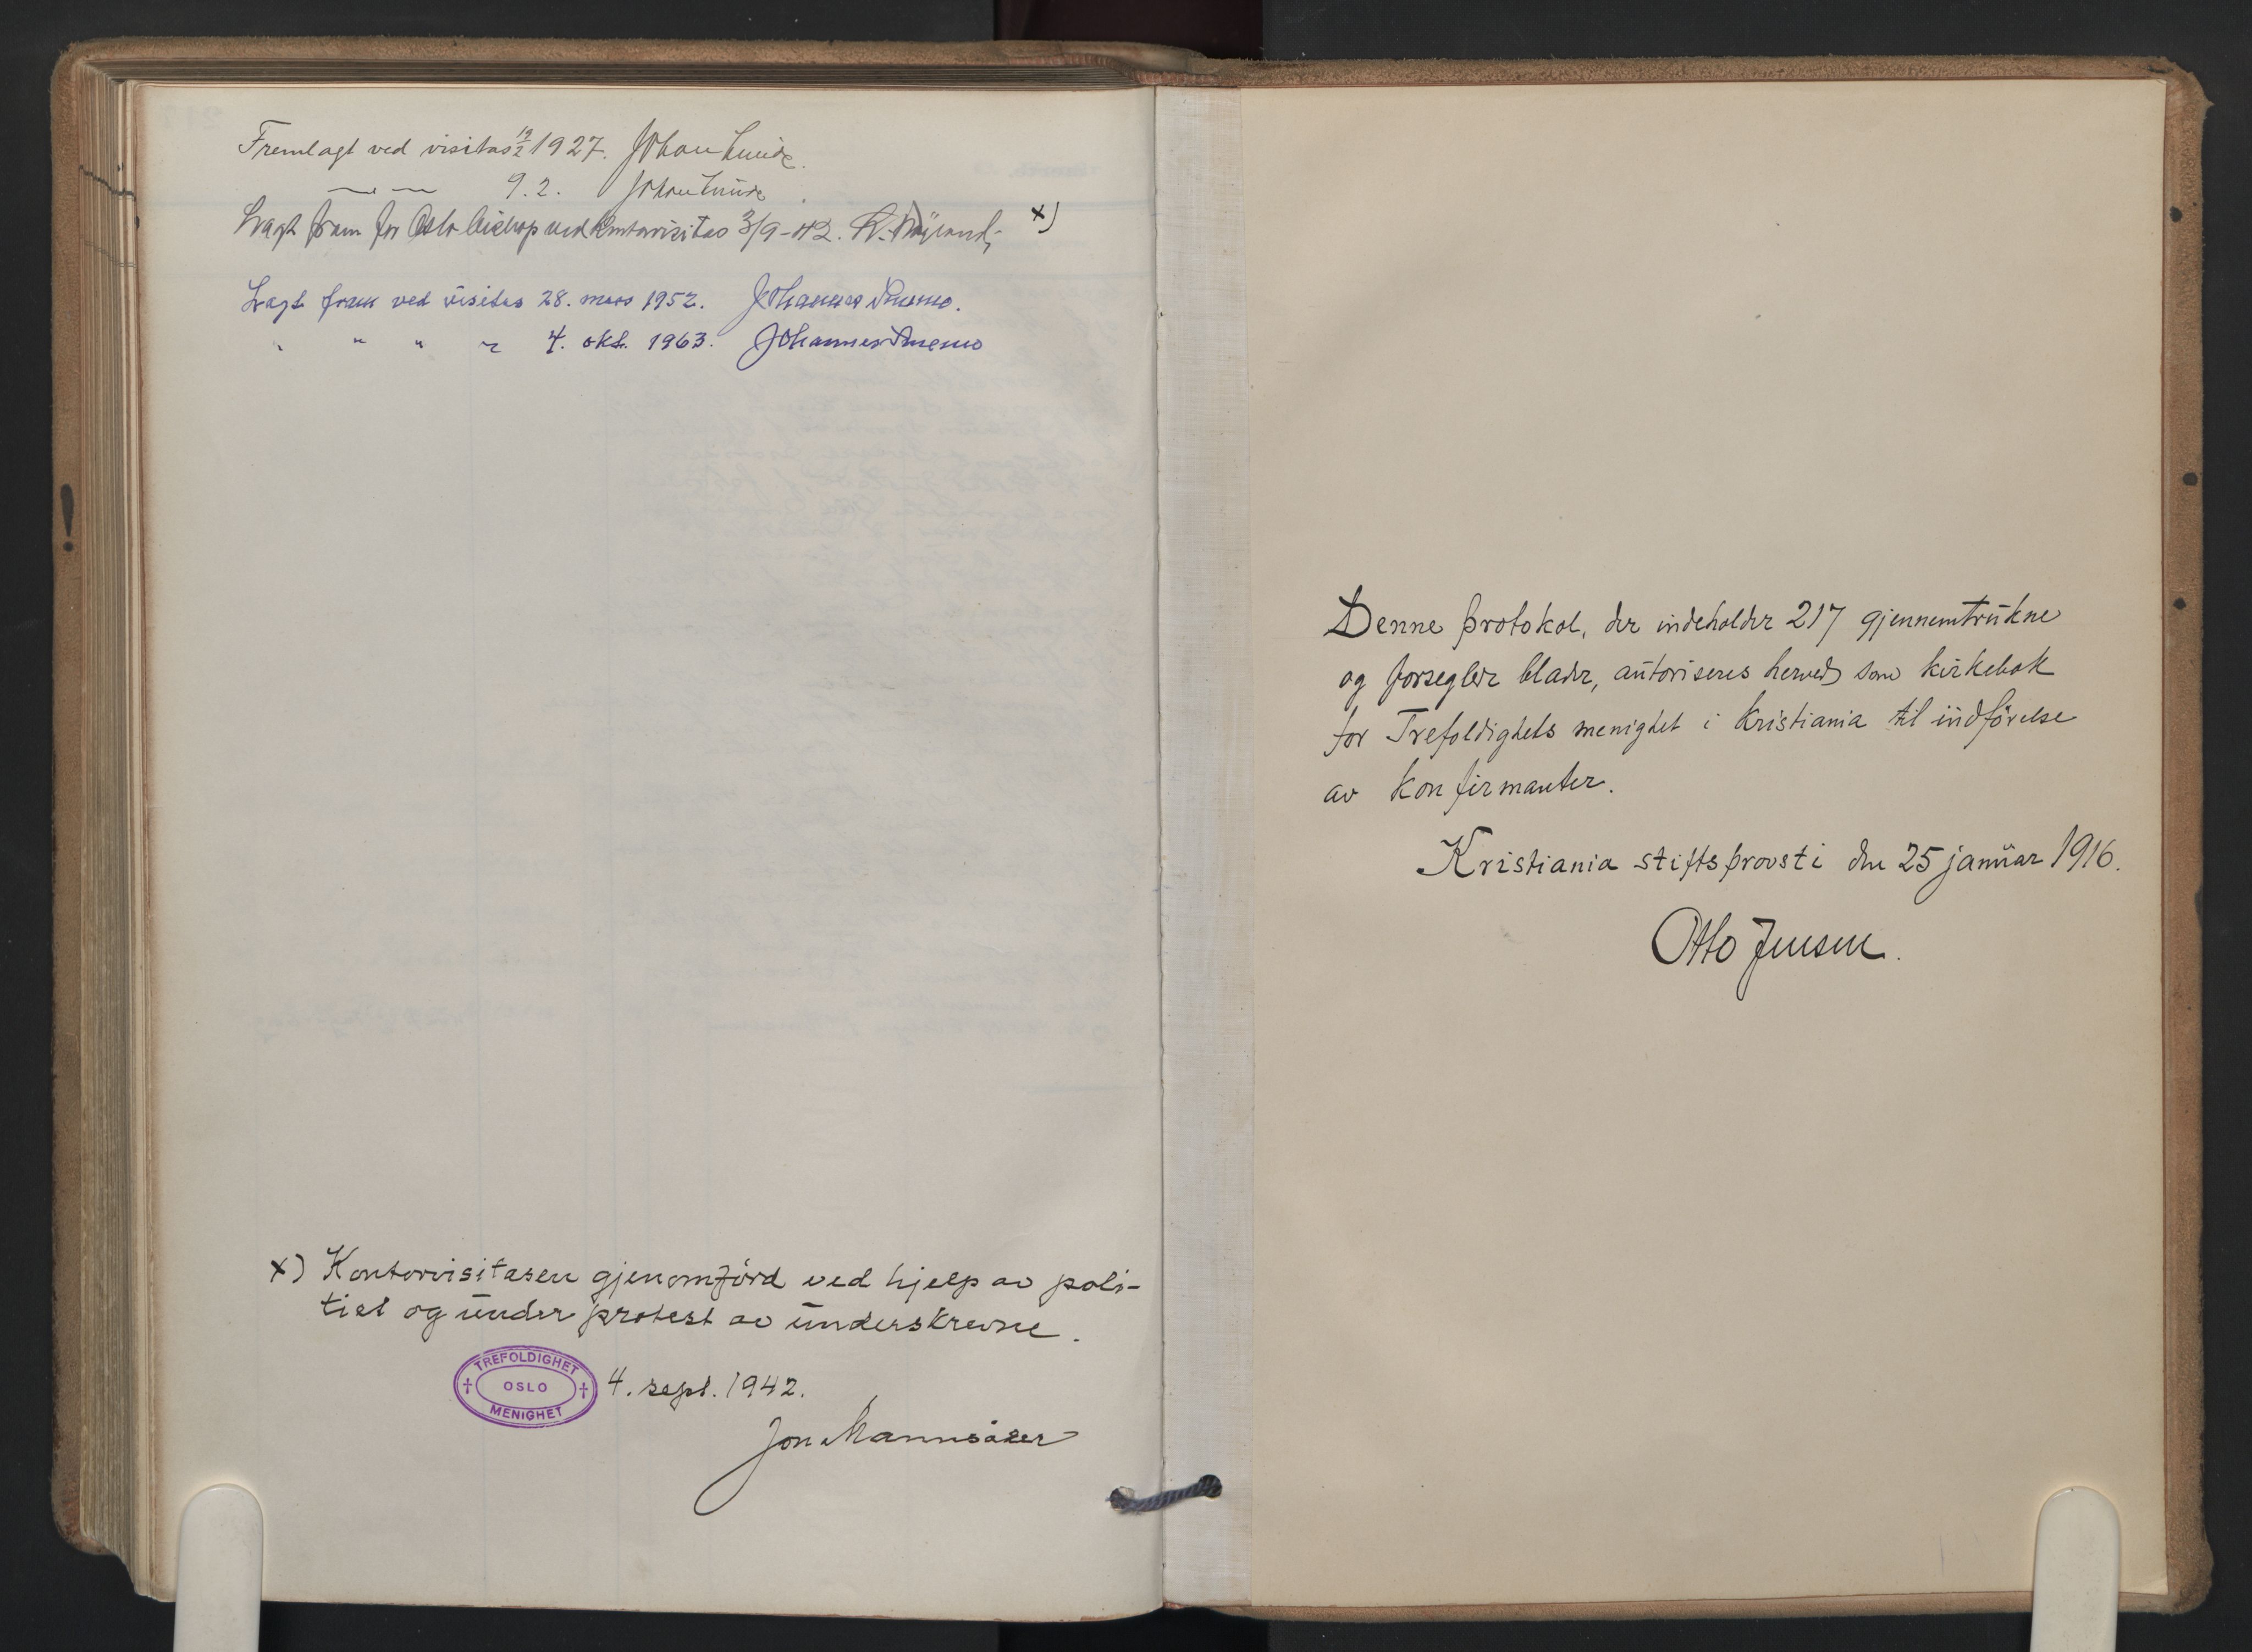 Fremlagt ved visitas 12/2 1927. Johan Lunde.
9.2. Johan Lunde
Lagt fram for Oslo biskop ved kontorvisitas 3/9-42. x)
Lagt fram ved visitas 28. mars 1952. Johannes Smemo.
" " " " 4. okt. 1963. Johannes Smemo
x) Kontorvisitasen gjenomförd ved hjelp av poli-
tiet og under protest av underskrevne.
TREFOLDIGHET
OSLO
MENIGHET
4. sept. 1942.
Jon Mannsåker
Denne protokol, der indeholder 217 gjennemtrukne
og forseglede blader, autoriseres herved som kirkebok
for Trefoldighets menighet i Kristiania til indförelse
av konfirmanter.
Kristiania stiftsprovsti den 25 januar 1916.
Otto Jensen.